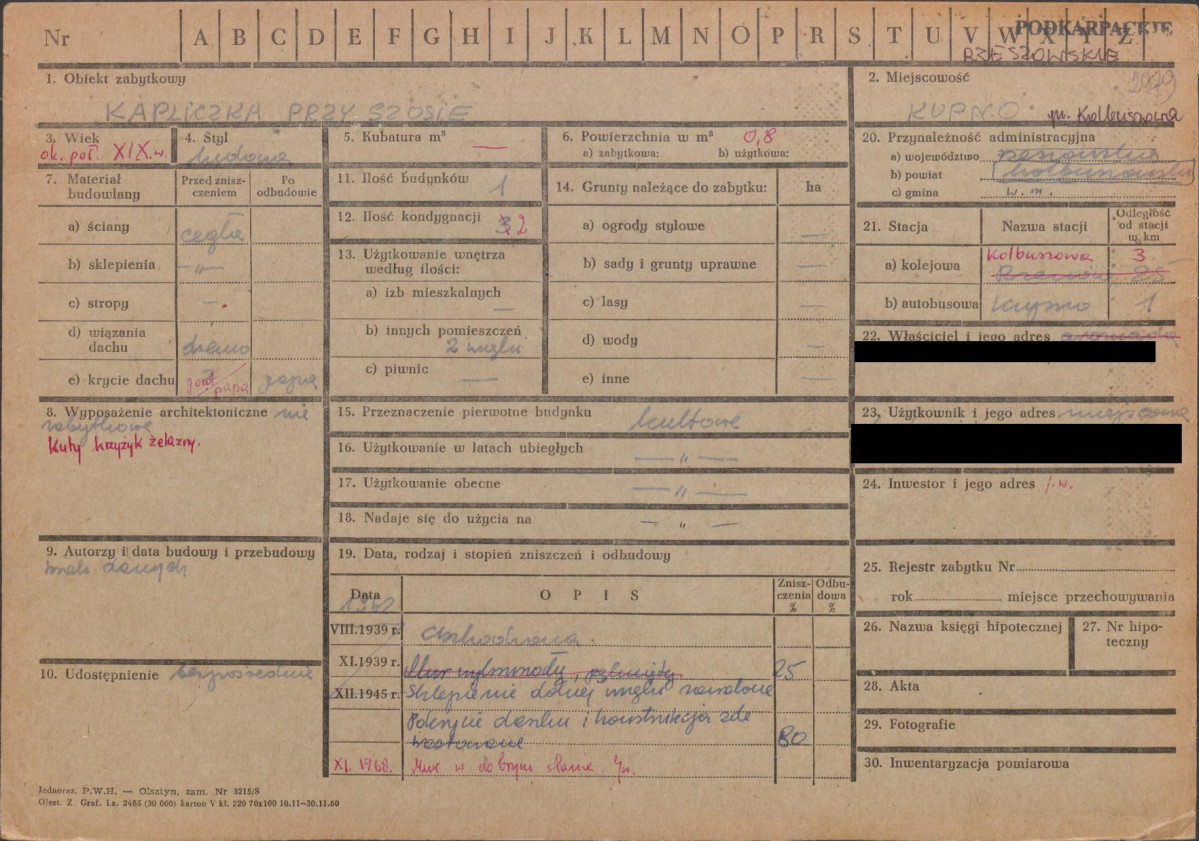 Nr A B C D E F G H I J K L M N O P R S T U V W X Y Z
PODKARPACKIE
RZESZOWSKIE
1. Obiekt zabytkowy
KAPLICZKA PRZY SZOSIE
2. Miejscowość
KUPNO m. Kolbuszowa
3. Wiek
ok. poł. XIX w.
4. Styl
ludowa
5. Kubatura m³ —
6. Powierzchnia w m² 0,8
a) zabytkowa: b) użytkowa:
7. Materiał budowlany
Przed zniszczeniem
Po odbudowie
a) ściany cegła
b) sklepienia —„—
c) stropy —
d) wiązania dachu drewno
e) krycie dachu papa papa
8. Wyposażenie architektoniczne nie
zabytkowe
Kuty krzyżyk żelazny.
9. Autorzy i data budowy i przebudowy
brak danych
10. Udostępnienie bezpośrednie
11. Ilość budynków 1
12. Ilość kondygnacji 2
13. Użytkowanie wnętrza według ilości:
a) izb mieszkalnych —
b) innych pomieszczeń
2 wnęki
c) piwnic —
14. Grunty należące do zabytku: ha
a) ogrody stylowe —
b) sady i grunty uprawne —
c) lasy —
d) wody —
e) inne —
15. Przeznaczenie pierwotne budynku
kultowe
16. Użytkowanie w latach ubiegłych — „ —
17. Użytkowanie obecne — „ —
18. Nadaje się do użycia na — „ —
19. Data, rodzaj i stopień zniszczeń i odbudowy
Data
O P I S
Zniszczenia %
Odbudowa %
VIII.1939 r.
XI.1939 r. 25
XII.1945 r. Sklepienie dolnej wnęki zawalone
Pokrycie dachu i konstrukcja
80
XI. 1968. Mur w dobrym stanie.
20. Przynależność administracyjna
a) województwo rzeszowskie
b) powiat kolbuszowski
c) gmina w. m.
21. Stacja
Nazwa stacji
Odległość od stacji w km
a) kolejowa Kolbuszowa 3
Rzeszów 25
b) autobusowa Kupno 1
22. Właściciel i jego adres gromada
23. Użytkownik i jego adres
24. Inwestor i jego adres j.w.
25. Rejestr zabytku Nr
rok miejsce przechowywania
26. Nazwa księgi hipotecznej
27. Nr hipoteczny
28. Akta
29. Fotografie
30. Inwentaryzacja pomiarowa
Jednoraz. P.W.H. — Olsztyn, zam. Nr 3215/S
Olszt. Z. Graf. Lz. 2465 (30 000) karton V kl. 220 70x100 16.11—30.11.60